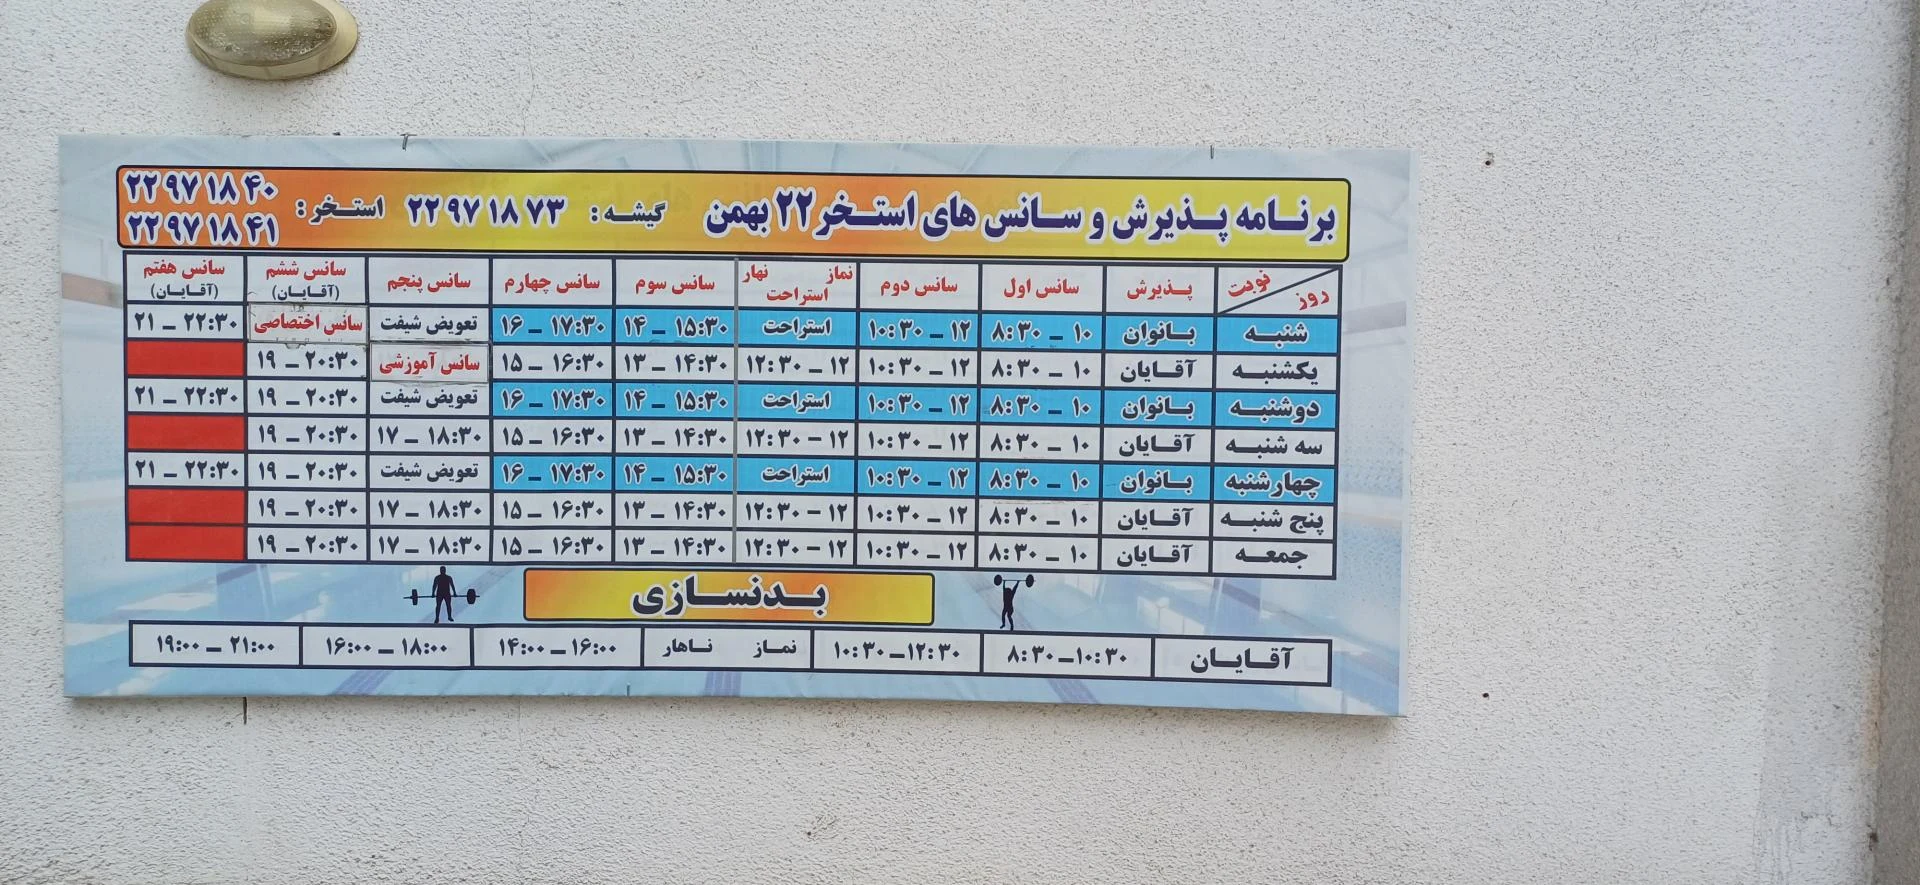 برنامه پذیرش و سانس های استخر ۲۲ بهمن گیشه : ۲۲۹۷۱۸۷۳ استخر : ۲۲۹۷۱۸۴۰
۲۲۹۷۱۸۴۱
نوبت روز پذیرش سانس اول سانس دوم نماز نهار استراحت سانس سوم سانس چهارم سانس پنجم سانس ششم (آقایان) سانس هفتم (آقایان)
شنبه بانوان ۱۰ – ۸:۳۰ ۱۲ – ۱۰:۳۰ استراحت ۱۵:۳۰ – ۱۴ ۱۷:۳۰ – ۱۶ تعویض شیفت سانس اختصاصی ۲۲:۳۰ – ۲۱
یکشنبه آقایان ۱۰ – ۸:۳۰ ۱۲ – ۱۰:۳۰ ۱۲ – ۱۲:۳۰ ۱۴:۳۰ – ۱۳ ۱۶:۳۰ – ۱۵ سانس آموزشی ۲۰:۳۰ – ۱۹
دوشنبه بانوان ۱۰ – ۸:۳۰ ۱۲ – ۱۰:۳۰ استراحت ۱۵:۳۰ – ۱۴ ۱۷:۳۰ – ۱۶ تعویض شیفت ۲۰:۳۰ – ۱۹ ۲۲:۳۰ – ۲۱
سه شنبه آقایان ۱۰ – ۸:۳۰ ۱۲ – ۱۰:۳۰ ۱۲ – ۱۲:۳۰ ۱۴:۳۰ – ۱۳ ۱۶:۳۰ – ۱۵ ۱۸:۳۰ – ۱۷ ۲۰:۳۰ – ۱۹
چهارشنبه بانوان ۱۰ – ۸:۳۰ ۱۲ – ۱۰:۳۰ استراحت ۱۵:۳۰ – ۱۴ ۱۷:۳۰ – ۱۶ تعویض شیفت ۲۰:۳۰ – ۱۹ ۲۲:۳۰ – ۲۱
پنج شنبه آقایان ۱۰ – ۸:۳۰ ۱۲ – ۱۰:۳۰ ۱۲ – ۱۲:۳۰ ۱۴:۳۰ – ۱۳ ۱۶:۳۰ – ۱۵ ۱۸:۳۰ – ۱۷ ۲۰:۳۰ – ۱۹
جمعه آقایان ۱۰ – ۸:۳۰ ۱۲ – ۱۰:۳۰ ۱۲ – ۱۲:۳۰ ۱۴:۳۰ – ۱۳ ۱۶:۳۰ – ۱۵ ۱۸:۳۰ – ۱۷ ۲۰:۳۰ – ۱۹
بدنسازی
آقایان ۸:۳۰–۱۰:۳۰ ۱۰:۳۰–۱۲:۳۰ نماز ناهار ۱۴:۰۰ – ۱۶:۰۰ ۱۶:۰۰ – ۱۸:۰۰ ۱۹:۰۰ – ۲۱:۰۰